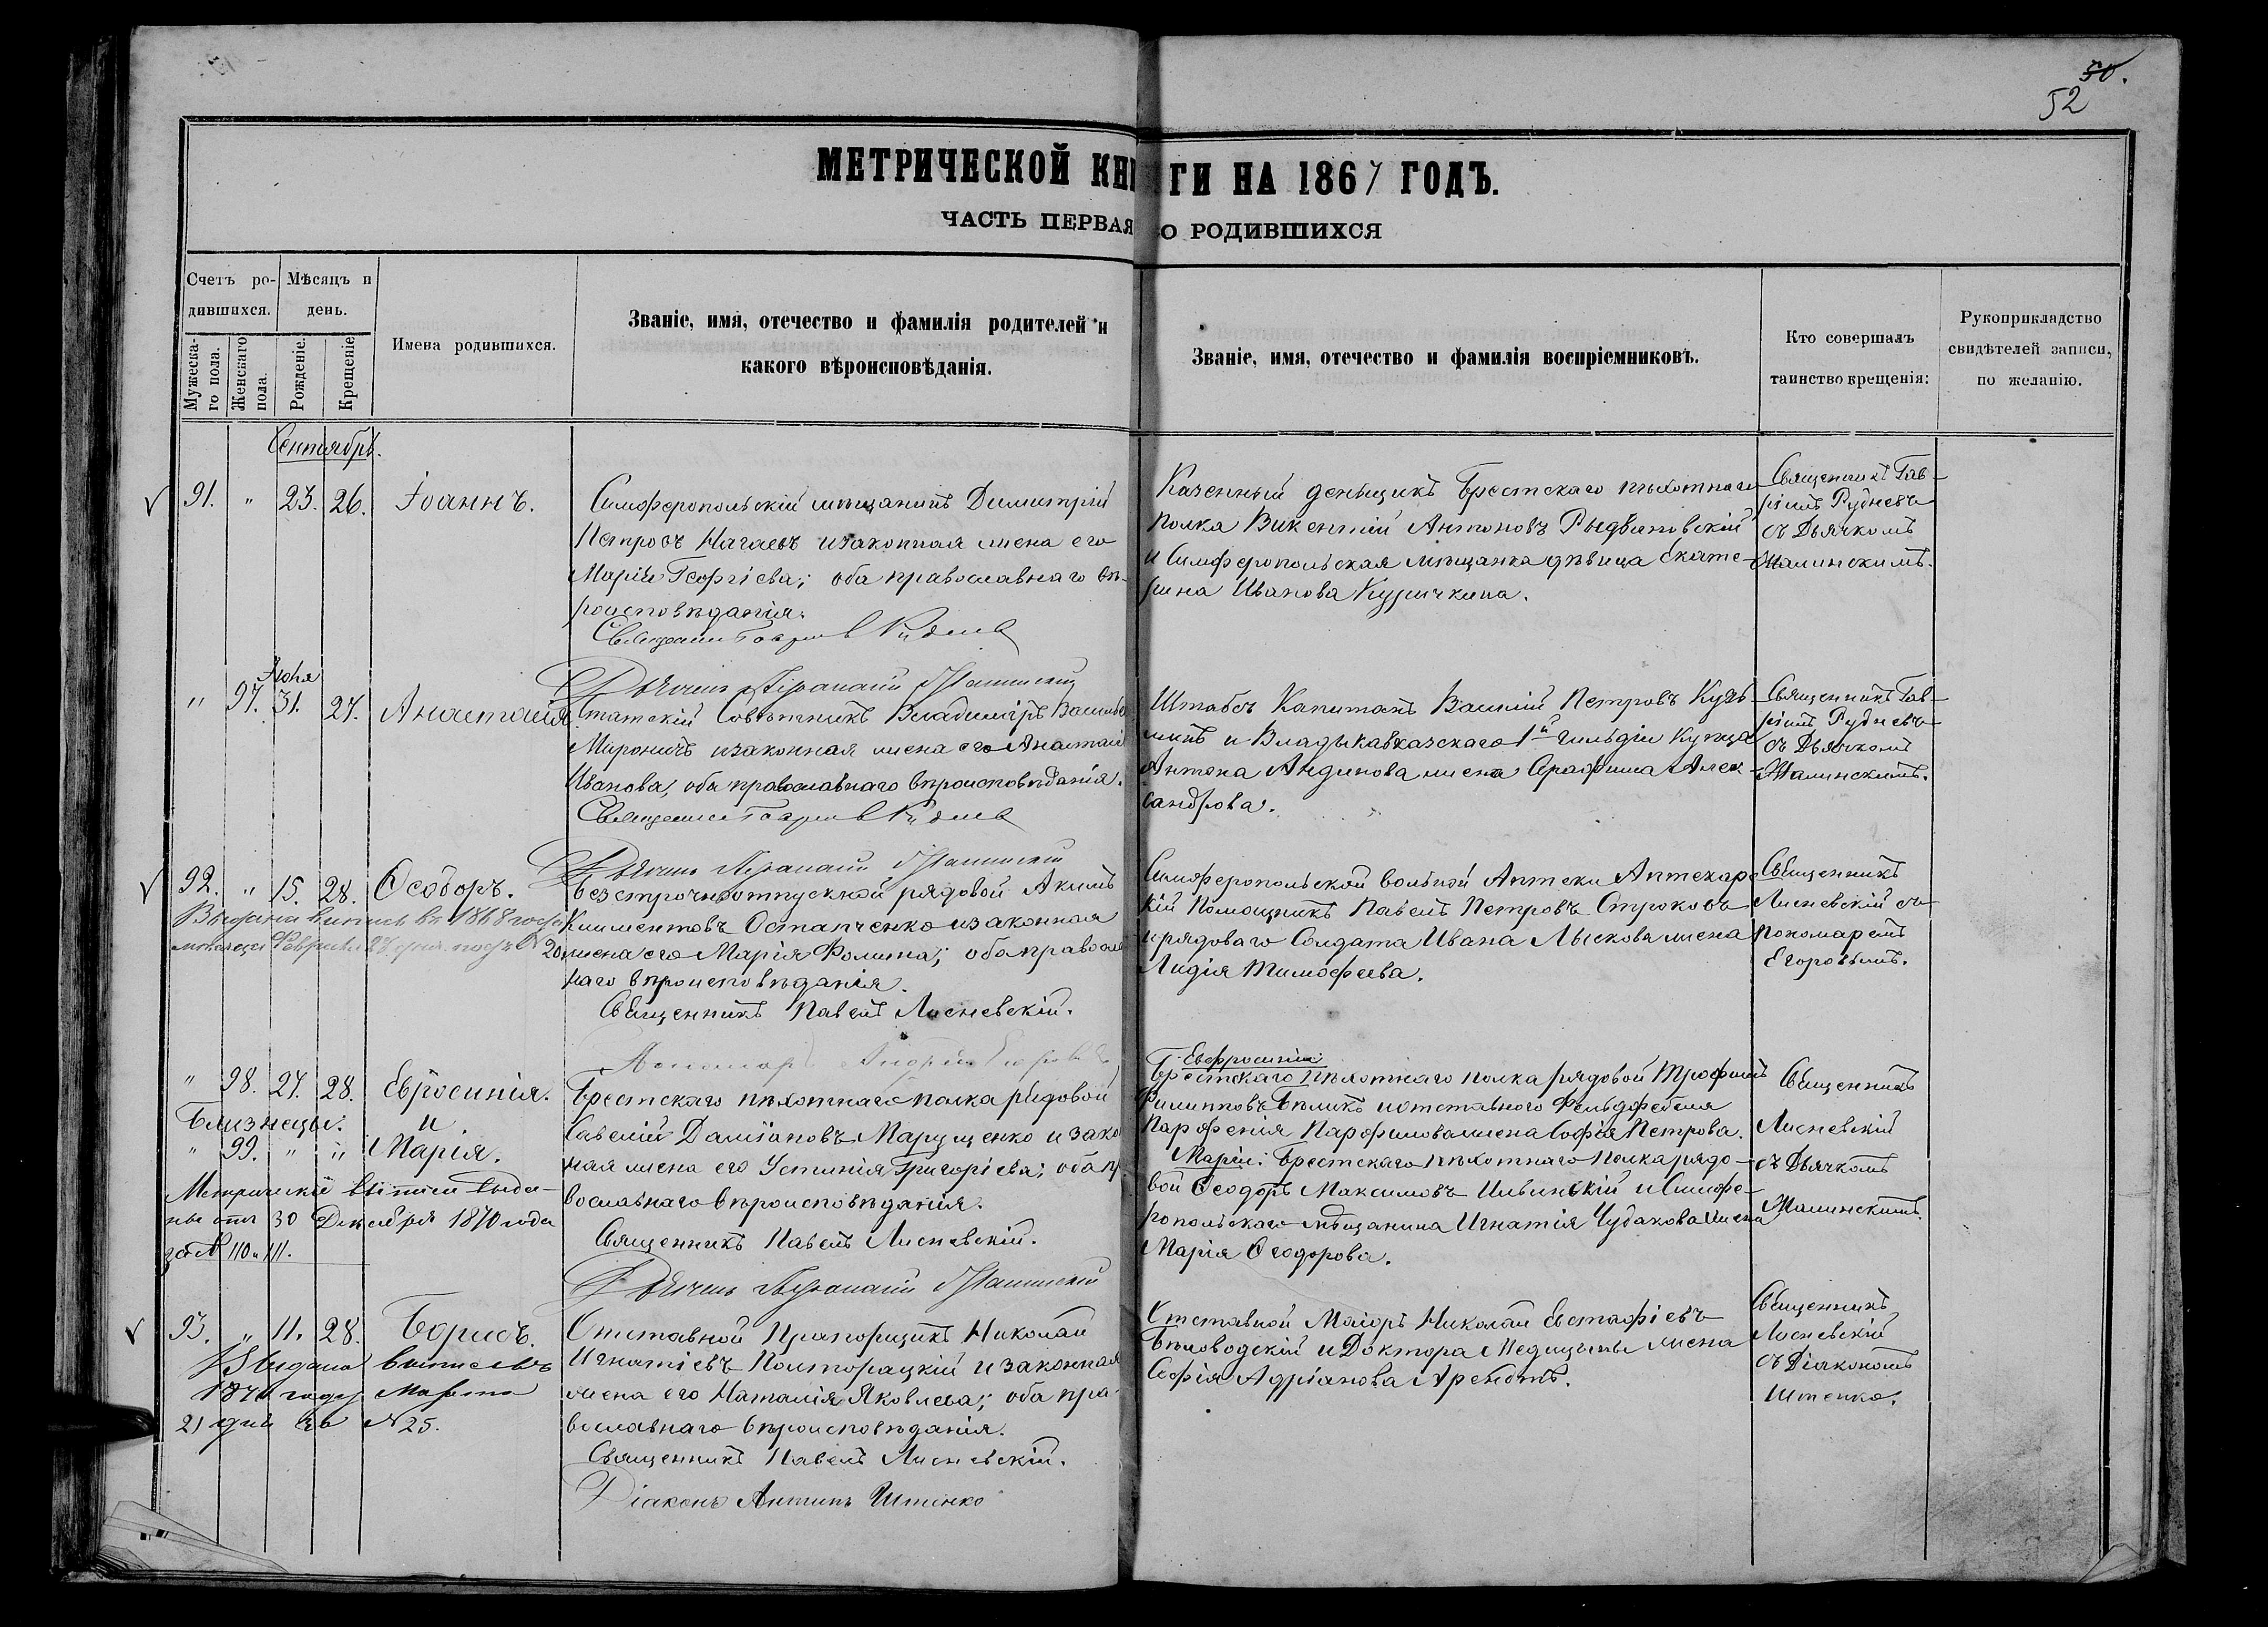 50.
52
МЕТРИЧЕСКОЙ КНИГИ НА 1867 ГОДЪ.
ЧАСТЬ ПЕРВАЯ О РОДИВШИХСЯ
Счетъ ро-
дившихся.
Мужеска-
го пола.
Женскаго
пола.
Мѣсяцъ и
день.
Рожденіе.
Крещеніе
Имена родившихся.
Званіе, имя, отечество и фамилія родителей и
какого вѣроисповѣданія.
Званіе, имя, отечество и фамилія воспріемниковъ.
Кто совершалъ
таинство крещенія:
Рукоприкладство
свидѣтелей записи,
по желанію.
Сентябрь.
91. " 23. 26. Іоаннъ.
Симферопольскій мѣщанинъ Димитрій
Петровъ Нагаевъ и законная жена его
Марія Георгіева; оба православнаго вѣ-
роисповѣданія.
Священникъ Гавріилъ Рудневъ
Казенный деньщикъ Брестскаго пѣхотнаго
полка Викентій Антоновъ Рыдвановскій
и Симферопольская мѣщанка дѣвица Екате-
рина Иванова Куричкина.
Священникъ Гав-
ріилъ Рудневъ
съ Дьячкомъ
Малинскимъ.
Дьячекъ Малинскій
" 97. Іюля 31. 27. Анастасія
Статскій Совѣтникъ Владиміръ
Мироничъ и законная жена его Анастасія
Иванова, оба православнаго вѣроисповѣданія.
Священникъ Гавріилъ Рудневъ
Дьячекъ Малинскій
Штабсъ Капитанъ Василій Петровъ Кузь-
минъ и Владыкавказскаго 1й гильдіи купца
Антона Андинова жена Серафима Алек-
сандрова.
Священникъ Гав-
ріилъ Рудневъ
съ Дьячкомъ
Малинскимъ.
92. " 15. 28. Ѳеодоръ.
Выдана выпись въ 1868 году
мѣсяца Февраля 27 дня подъ № 20
Безсрочноотпускной рядовой Акимъ
Климентовъ Остапченко и законная
жена его Марія Фомина; оба православ
наго вѣроисповѣданія.
Священникъ Павелъ Лисневскій.
Пономарь Андрей Егоровъ
Симферопольской вольной Аптеки Аптекарс
кій Помощникъ Павелъ Петровъ Строковъ
и рядоваго Солдата Ивана Лыскова жена
Лидія Тимофеева.
Священникъ
Лисневскій съ
пономаремъ
Егоровымъ.
" 98. 27. 28. Евфросинія.
Близнецы: и
" 99. " " Марія.
Метрическія выписи выда-
ны отъ 30 Декабря 1870 года
за № 110 и 111.
Брестскаго пѣхотнаго полка рядовой
Савелій Даміановъ Марущенко и закон
ная жена его Устинія Григоріева; оба пра
вославнаго вѣроисповѣданія.
Священникъ Павелъ Лисневскій.
Дьячекъ Малинскій
Евфросиніи:
Брестскаго пѣхотнаго полка рядовой Трофимъ
Филипповъ Бѣликъ и отставного Фельдфебеля
Парфенія Парфилова жена Софія Петрова.
Маріи: Брестскаго пѣхотнаго полка рядо-
вой Ѳеодоръ Максимовъ Ильинскій и Симфе-
ропольскаго мѣщанина Игнатія Чудакова жена
Марія Ѳеодорова.
Священникъ
Лисневскій
съ Дьячкомъ
Малинскимъ.
93. " 11. 28. Борисъ.
Выдана выпись въ
1870 году Марта
21 дня за № 25.
Отставной Прапорщикъ Николай
Игнатіевъ Полторацкій и законная
жена его Наталія Яковлева; оба пра-
вославнаго вѣроисповѣданія.
Священникъ Павелъ Лисневскій.
Діаконъ Антипъ Штенко
Отставной Маіоръ Николай Евстафіевъ
Бѣловодскій и Доктора Медицины жена
Софія Адріанова Арендтъ.
Священникъ
Лисневскій
съ Діакономъ
Штенко.